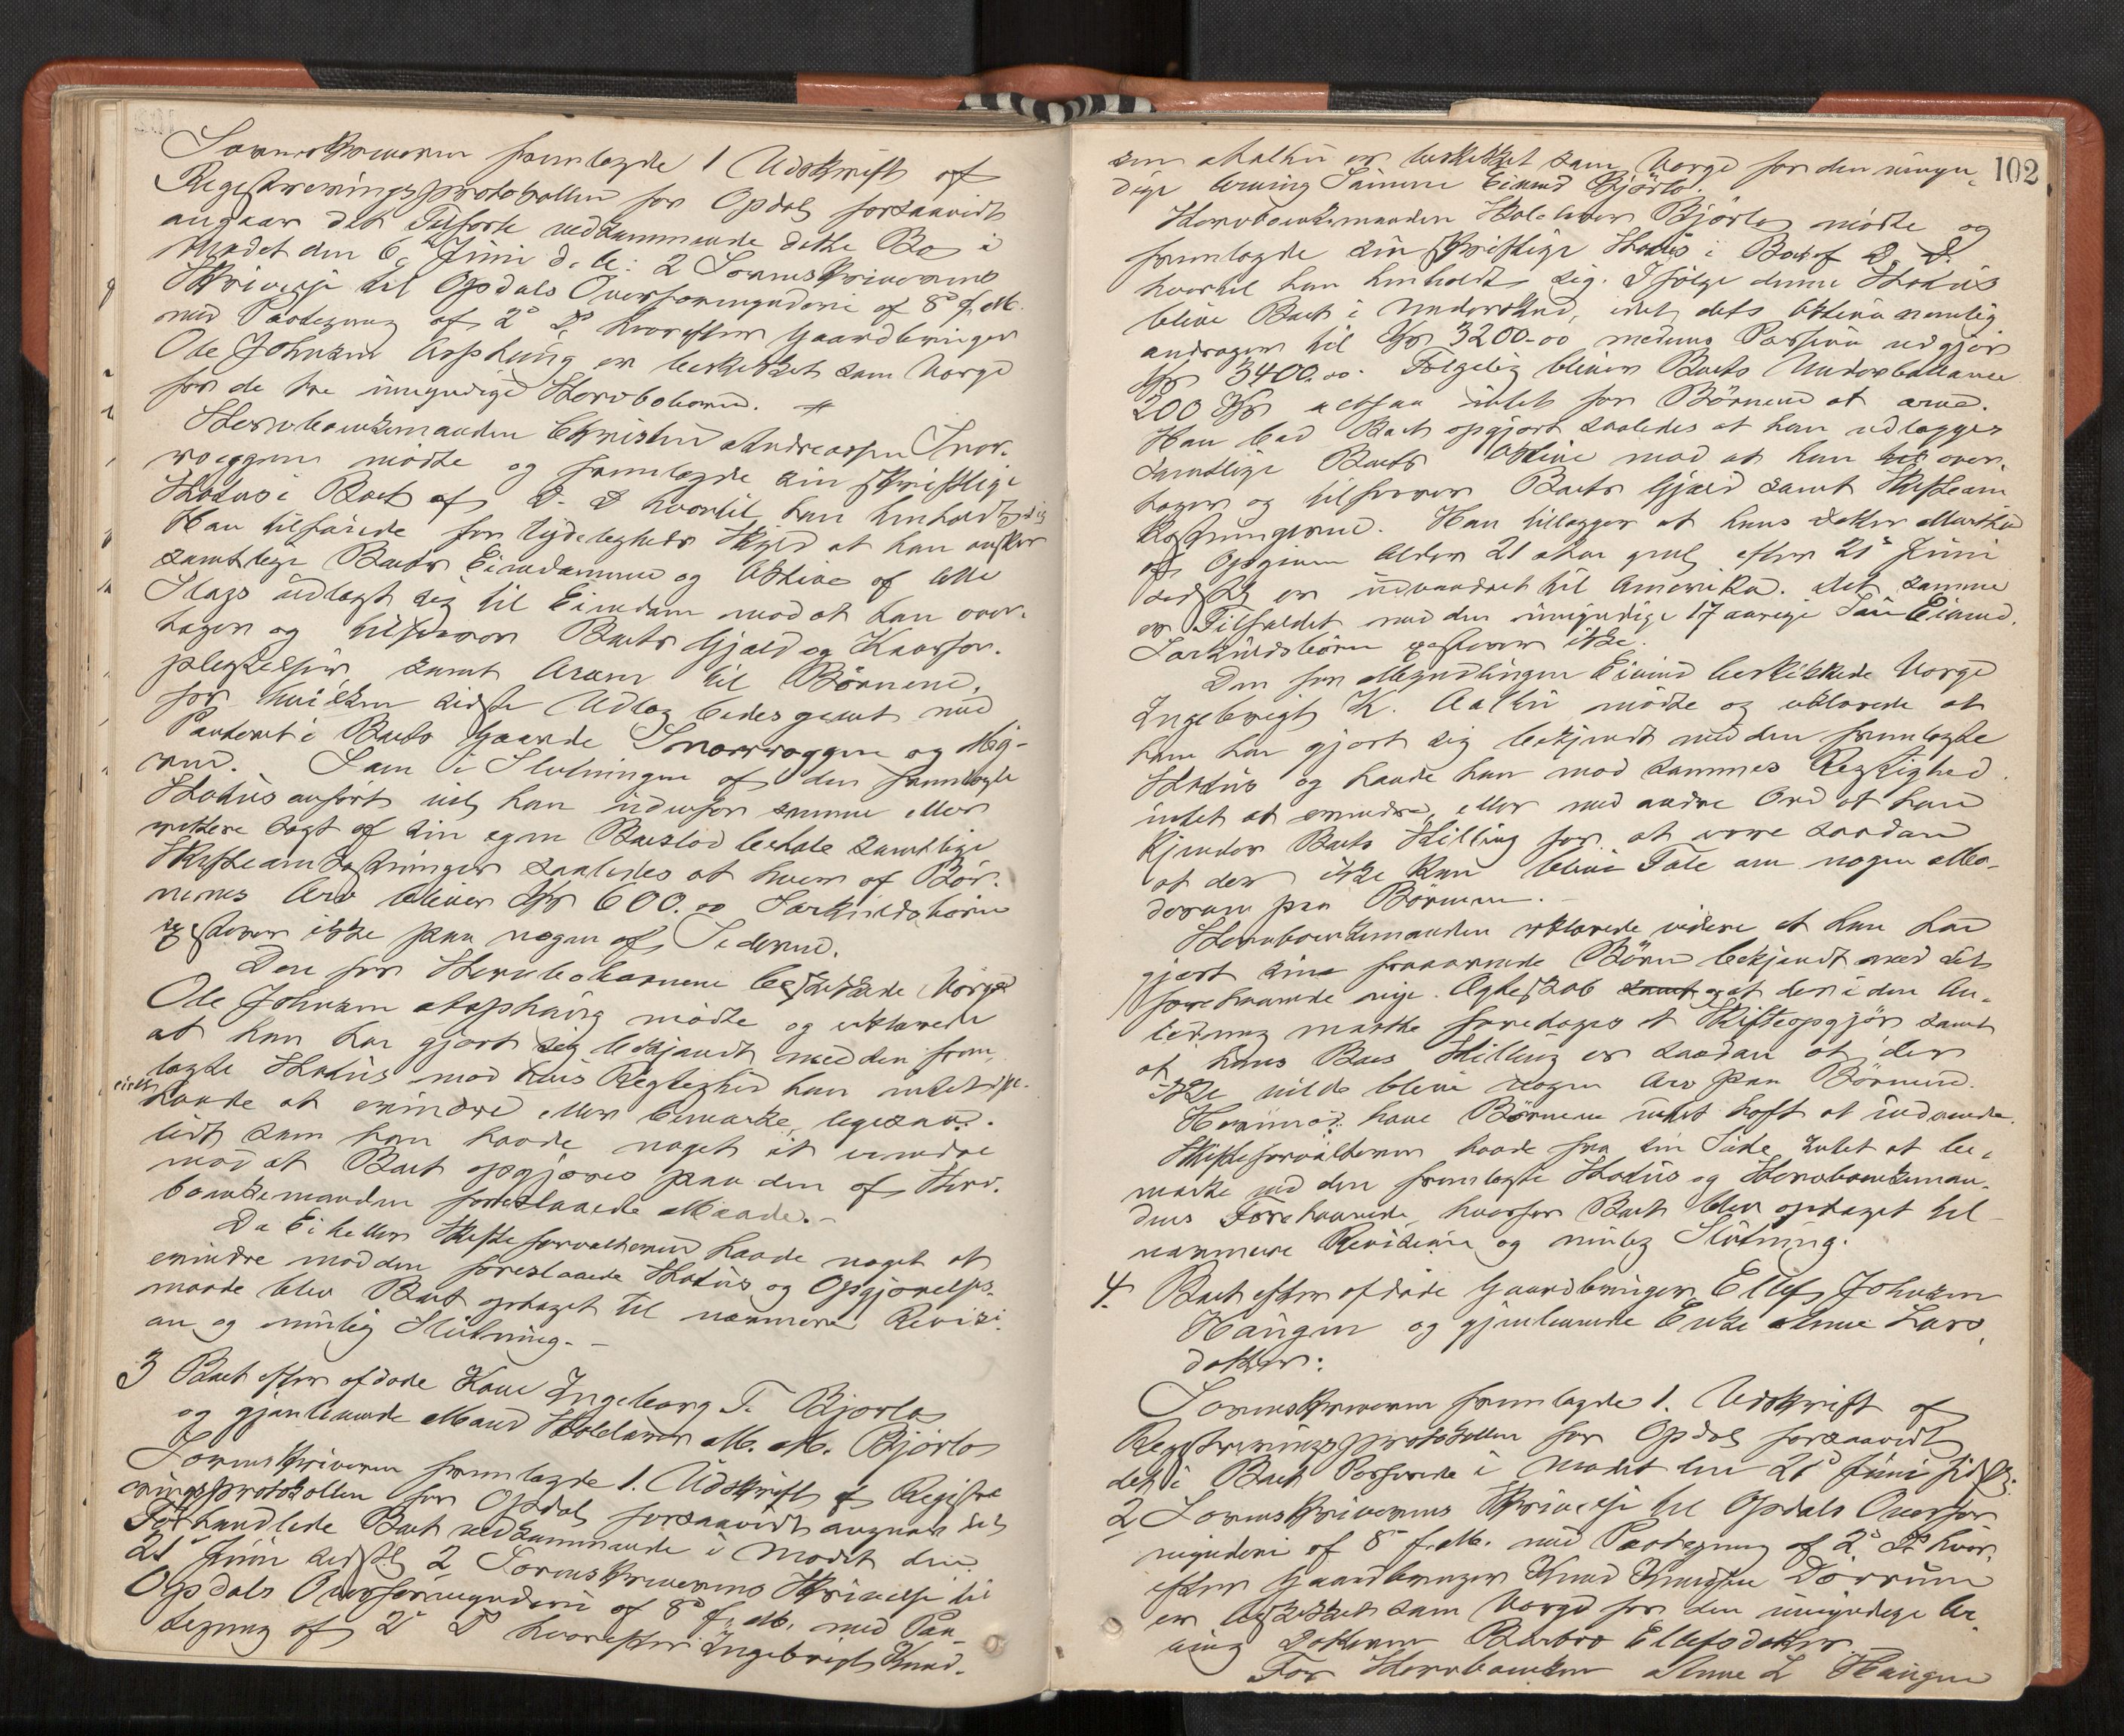 Sorenskriveren fremlagde 1 Udskrift af
Registreringsprotokollen for Opdal forsaavidt
angaar det Tilførte vedkommende dette Bo i
Mødet den 6 Juni d. A. 2 Sorenskriverens
Skrivelse til Opdals Overformynderi af 8 f. M.
med Paategning af 2 ds hvorefter Gaardbruger
Ole Johnsen er beskikket som Værge
for de tre umyndige Stervbobørn.
Stervboenkemanden Christen Andreassen Snør-
røeggen mødte og fremlagde sin skriftlige
Status i Boet af D. D. hvortil han henholdt sig
Han tilføiede for Tydeligheds Skyld at han ønsker
samtlige Boets Eiendomme og Aktiva af alle
Slags udlagt sig til Eiendom mod at han over-
tager og tilsvarer Boets Gjæld og Kaarfor-
pligtelser samt Arven til Børnene,
for hvilken sidste Udlæg bedes givet med
Panteret i Boets Gaarde og
Som i Slutningen af den fremlagte
Status anført vil han udenfor samme eller
rettere sagt af sin egen Boeslod betale samtlige
Skifteomkostninger saaledes at hver af Bør-
nenes Arv bliver Kr 600.00 Særkuldsbørn
existerer ikke paa nogen af Siderne.
Den for Stervbobørnene beskikkede Værge
Ole Johnsen mødte og erklærede
at han har gjort sig bekjendt med den frem-
lagte Status mod hvis Rigtighed han intet
havde at erindre eller bemærke, ligesaa-
lidt som han havde noget at erindre
mod at Boet opgjøres paa den af Stervbo-
enkemanden foreslaaede Maade.-
Da Ei heller Skifteforvalteren havde noget at
erindre mod den foreslaaede Status og Opgjørelses-
maade blev Boet optaget til nærmere Revisi-
on og mulig Slutning.-
3 Boet efter afdøde Kone Ingeborg T. Bjørlo
og gjenlevende Mand Haldanor M. M. Bjørlo
Sorenskriveren fremlagde 1. Udskrift af Registre-
ringsprotokollen for Opdal forsaavidt angaar det
Forhandlede Boet vedkommende i Mødet den
21 Juni sidstl. 2 Sorenskriverens Skrivelse til
Opdals Overformynderi af 8 f. M. med Paa-
tegning af 2 D hvorefter Ingebrigt Knud-
102
sen Aalbu er beskikket som Værge for den umyn-
dige Arving Sønnen Eivind Bjørlo.
Stervboenkemanden Haldanor Bjørlo mødte og
fremlagde sin skriftlige Status i Boet af D. D.
hvortil han henholdt sig. Ifølge denne Status
blive Boet i Underskud, idet dets Aktiva nemlig
andrager til Kr 3200.00 medens Passiva udgjør
Kr 3400.00. Følgelig bliver Boets Underballance
200 Kr altsaa intet for Børnene at arve.
Han bad Boet opgjort saaledes at han udlægges
samtlige Boets Aktiva mod at han over-
tager og tilsvarer Boets Gjæld samt Skifteom-
kostningerne. Han tillægger at hans Datter Marthe
af Opgiven Alder 21 Aar gml efter 21 Juni
sidstl er udvandret til Amerika. Det samme
er Tilfældet med den umyndige 17 aarige Søn Eivind.
Særkuldsbørn existerer ikke.
Den for Myndlingen Eivind beskikkede Værge
Ingebrigt K. Aalbu mødte og erklærede at
han har gjort sig bekjendt med den fremlagte
Status og havde han mod sammes Rigtighed
intet at erindre, eller med andre Ord at han
kjender Boets Stilling for at være saadan
at der ikke kan blive Tale om nogen Mo-
derarv paa Børnene.-
Stervboenkemanden erklærede videre at han har
gjort sine fraværende Børn bekjendt med sit
forehavende nye Ægteskab og at der i den An-
ledning maatte foretages et Skifteopgjør samt
at hans Boes Stilling er saadan at der
ikke vilde blive nogen Arv paa Børnene.
Herimod have Børnene intet havt at indvende.
Skifteforvalteren havde fra sin Side intet at be-
mærke ved den fremlagte Status og Stervboenkeman-
dens Forehavende, hvorfor Boet blev optaget til
nærmere Revision og mulig Slutning.
4. Boet efter afdøde Gaardbruger Ellef Johnsen
Haugen og gjenlevende Enke Anne Lars-
datter:
Sorenskriveren fremlagde 1. Udskrift af
Registreringsprotokollen for Opdal forsaavidt
det i Boet Passerede i Mødet den 21 Juni sidstl.
2 Sorenskriverens Skrivelse til Opdals Overfor-
mynderi af 8 f. M. med Paategning af 2 D hvor-
efter Gaardbruger Knud Knudsen Dørrum
er beskikket som Værge for den umyndige Ar-
ving Datteren Barbro Ellefsdatter.
For Stervboenken Anne L Haugen